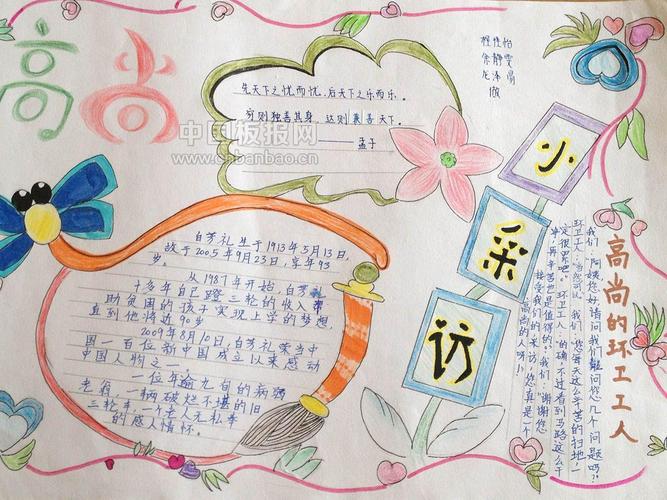 高尚
中国板报网
www.chbanbao.cn
先天下之忧而忧,后天下之乐而乐。
穷则独善其身,达则兼善天下。
——孟子
程佳怡
余静雯
龙泽
做
小采访
白芳礼生于1913年5月13日,
故于2005年9月23日,享年93
岁。
从1987年开始,白芳礼
十多年自己蹬三轮的收入帮
助贫困的孩子实现上学的梦想,
直到他将近90岁
2009年8月10日,白芳礼荣当中
国一百位新中国成立以来感动
中国人物之一
一位年逾九旬的病弱
老翁,一辆破烂不堪的旧
三轮车,一个老人无私奉
的感人情怀。
高尚的环卫工人
我们:“阿姨您好,请问我们能问您几个问题吗?”
环卫工人:“当然可以。”我们:“您每天这么辛苦的扫地,一
定很累吧。”环卫工人:“的确,不过看到马路这么干
净,再辛苦也是值得的。”我们:“谢谢您
接受我们的采访,您真是一个
高尚的人呀!”